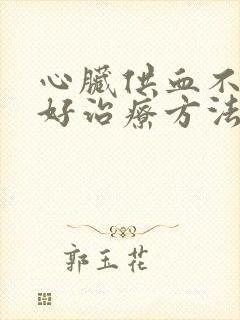 心臟供血不
好治療方法
郭玉花